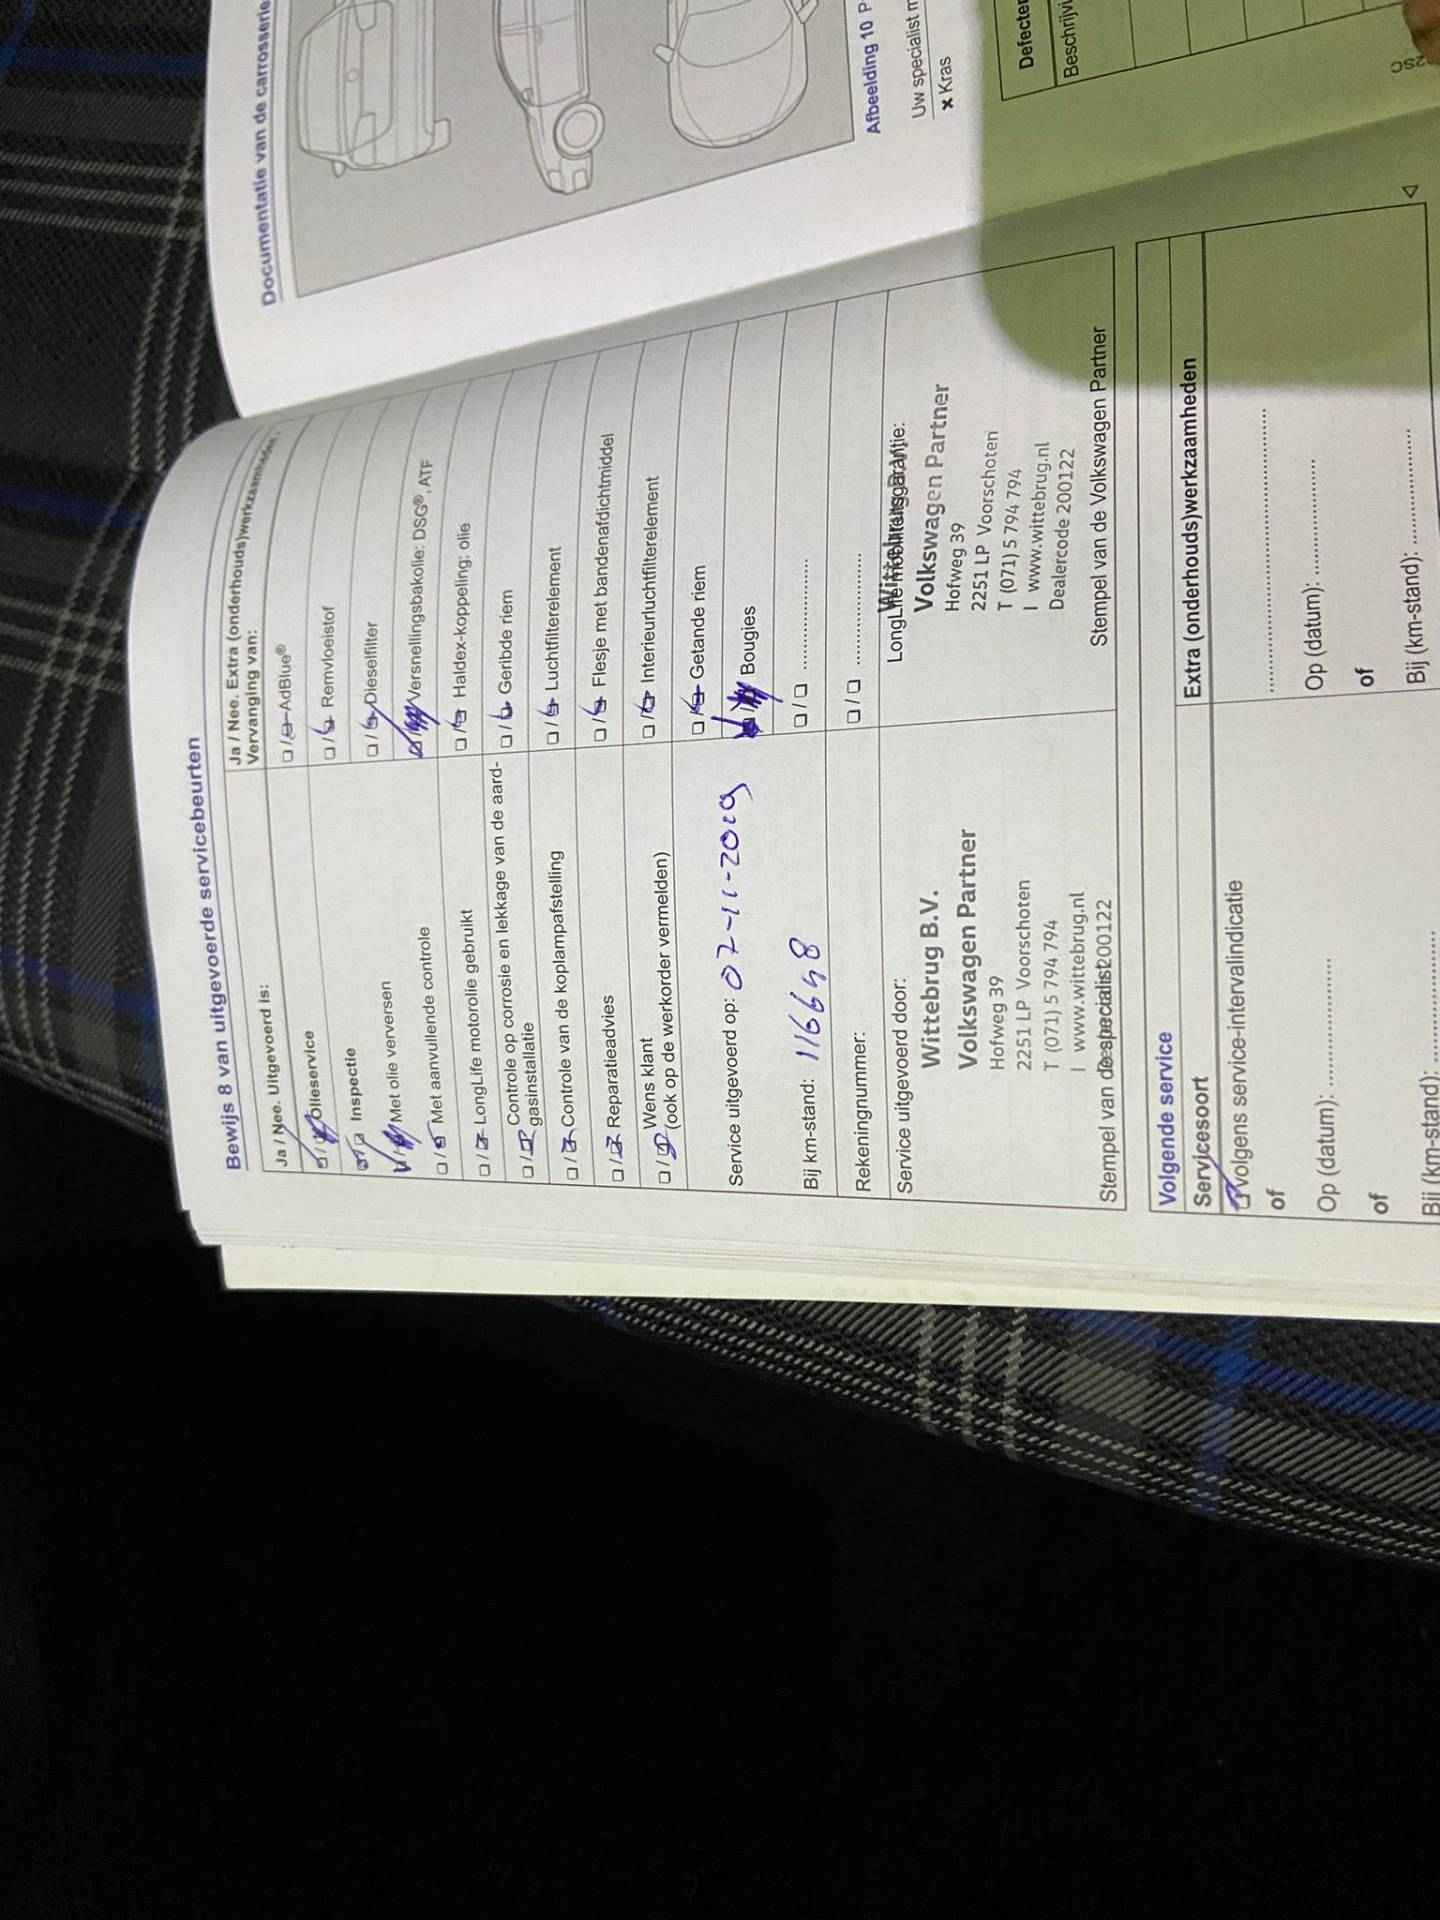 Bewijs 8 van uitgevoerde servicebeurten
Ja / Nee. Uitgevoerd is:
Olieservice
Inspectie
Met olie verversen
Met aanvullende controle
LongLife motorolie gebruikt
Controle op corrosie en lekkage van de aard-
gasinstallatie
Controle van de koplampafstelling
Reparatieadvies
Wens klant
(ook op de werkorder vermelden)
Ja / Nee. Extra (onderhouds)werkzaamheden
Vervanging van:
AdBlue®
Remvloeistof
Dieselfilter
Versnellingsbakolie: DSG®, ATF
Haldex-koppeling: olie
Geribde riem
Luchtfilterelement
Flesje met bandenafdichtmiddel
Interieurluchtfilterelement
Getande riem
Bougies
Service uitgevoerd op: 07-11-2019
Bij km-stand: 116648
Rekeningnummer:
Service uitgevoerd door:
Wittebrug B.V.
Volkswagen Partner
Hofweg 39
2251 LP Voorschoten
T (071) 5 794 794
I www.wittebrug.nl
Stempel van de specialist 200122
LongLife mobiliteitsgarantie:
Wittebrug B.V.
Volkswagen Partner
Hofweg 39
2251 LP Voorschoten
T (071) 5 794 794
I www.wittebrug.nl
Dealercode 200122
Stempel van de Volkswagen Partner
Volgende service
Servicesoort
volgens service-intervalindicatie
of
Op (datum):
of
Bij (km-stand):
Extra (onderhouds)werkzaamheden
Op (datum):
of
Bij (km-stand):
Documentatie van de carrosserie
Afbeelding 10
Uw specialist
× Kras